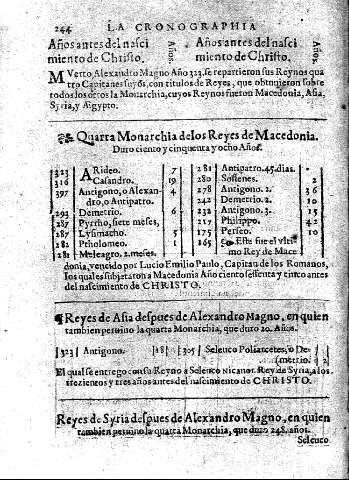 244 LA CRONOGRAPHIA
Años antes del naci Años. Años antes del naci Años.
miento de Christo. miento de Christo.
MVerto Alexandro Magno Año 323. se repartieron sus Reynos qua
tro Capitanes suyos, con titulos de Reyes, que obtuuieron sobre
todos los otros la Monarchia, cuyos Reynos fueron Macedonia, Asia,
Syria, y Ægypto.
Quarta Monarchia de los Reyes de Macedonia.
Duro ciento y cinquenta y ocho Años.
323 ARideo. 7
316 Casandro. 19
397 Antigono, o Alexan- 4
dro, o Antipatro.
293 Demetrio. 6
287 Pyrrho, siete meses,
287 Lysimacho. 5
282 Ptholomeo. 1
281 Meleagro. 2. meses.
281 Antipatro. 45. dias.
280 Sostenes. 2
278 Antigono. 2. 36
242 Demetrio. 2. 10
232 Antigono. 3. 15
217 Philippo. 42
175 Perseo. 10
165 Este fue el vlti-
mo Rey de Mace
donia, vencido por Lucio Emilio Paulo, Capitan de los Romanos,
los quales subjetaron a Macedonia Año ciento sessenta y cinco antes
del nascimiento de CHRISTO.
Reyes de Asia despues de Alexandro Magno, en quien
tambien permino la quarta Monarchia, que duro 20. Años.
323 Antigono. 18 305 Seleuco Poliarcetes, o De-
metrio. 2
El qual se entrego con su Reyno a Seleuco Nicanor. Rey de Syria, a los
trezientos y tres años antes del nascimiento de CHRISTO.
Reyes de Syria despues de Alexandro Magno, en quien
tambien permino la quarta Monarchia, que duro 248. años.
Seleuco